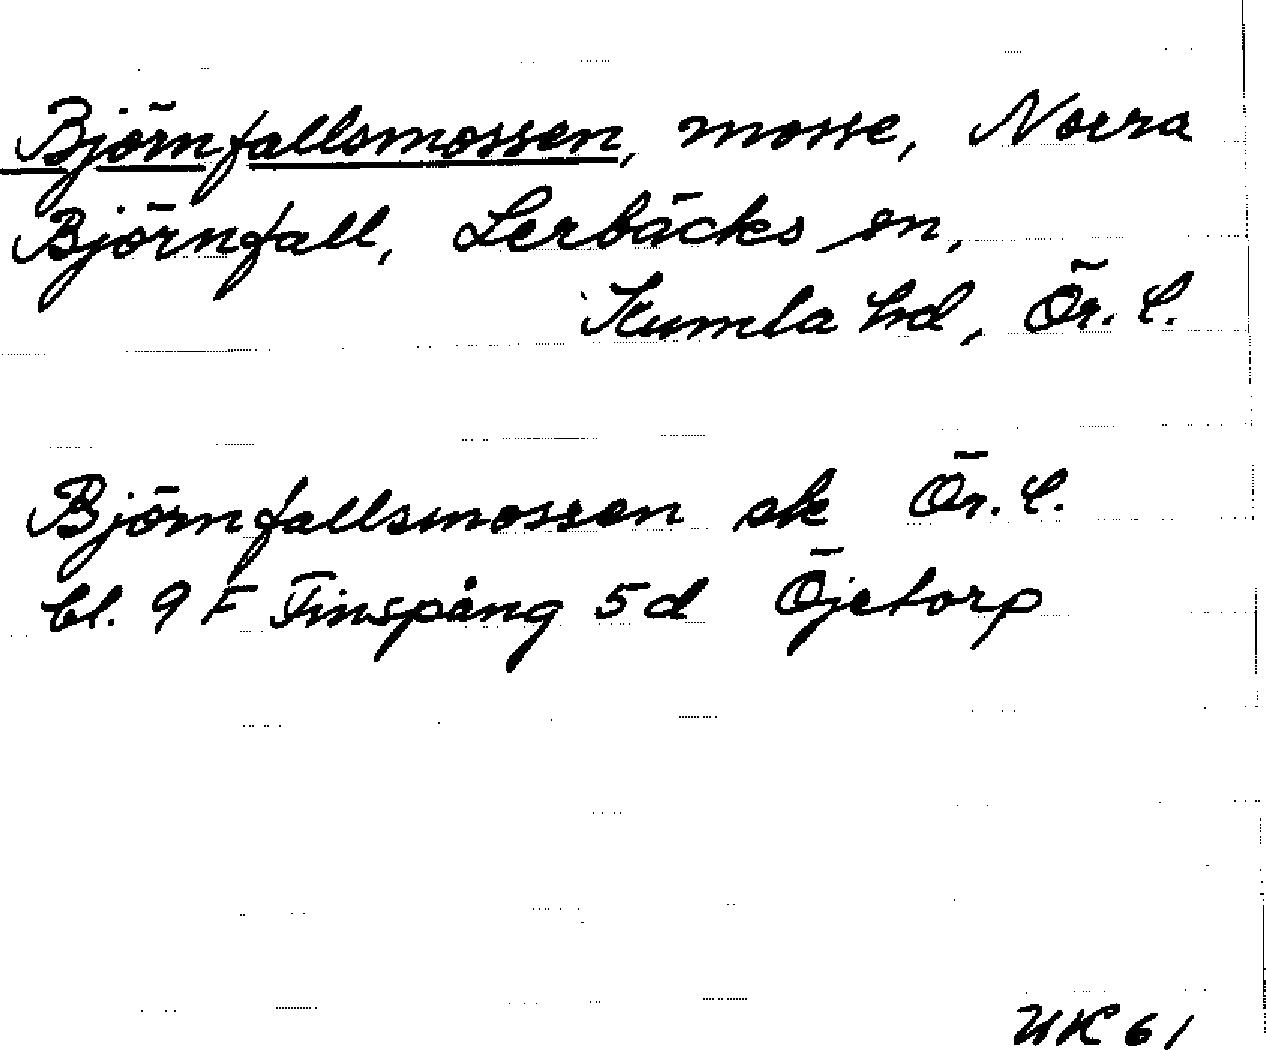 Björnfallsmossen, mosse, Norra
Björnfall, Lerbäcks sn,
Kumla hd, Ör. l.
Björnfallsmossen ek Ör. l.
bl. 9 F Finspång 5 d Öjetorp
UK 61